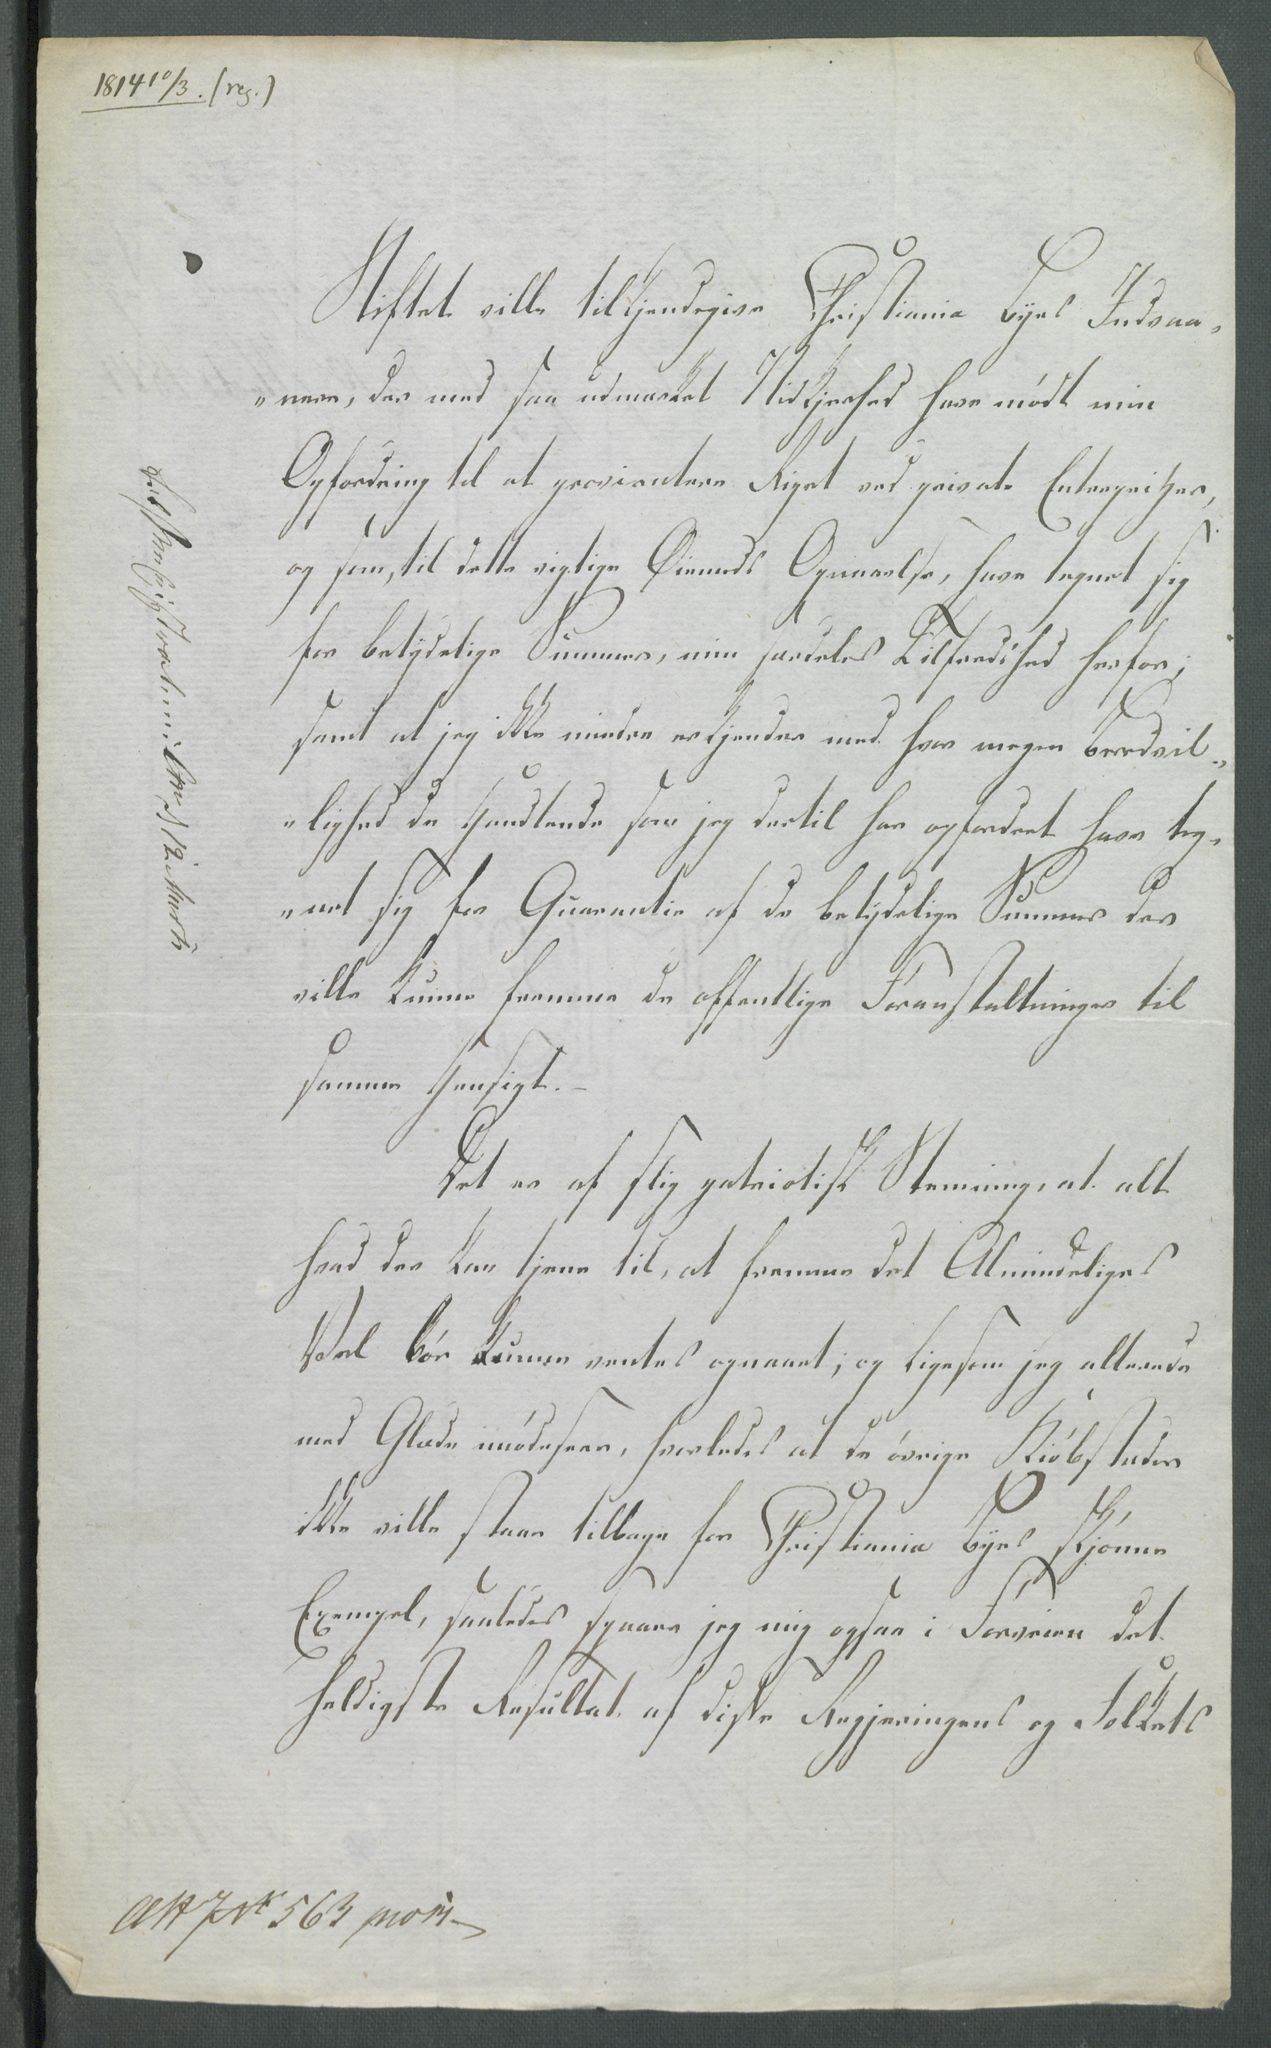 1814 10/3. (reg.)
Stiftet ville tilkjendegive Christiania Byes Indvaa„
„nere, der med saa udmærket Nidkjerhed have mödt min
Opfordring til at proviantere Riget ved private Entrepriser,
og som, til dette vigtige Öiemeds Opnaaelse, have tegnet sig
for betydelige Summer, min særdeles Tilfredshed herfor;
samt at jeg ikke mindre erkjender med hvor megen Beredvil„
„lighed de Handlende som jeg dertil har opfordret have teg„
„net sig for Guarantie af de betydelige Summer der
ville kunne fremme de offentlige Foranstaltninger til
samme Hensigt.—
Det er af slig patriotisk Stemning, at alt
hvad der kan tjene til, at fremme det Almindeliges
Vel bör kunne ventes opnaaet; og ligesom jeg allerede
med Glæde imödeseer, hvorledes at de övrige Kiöbstæder
ikke ville staae tilbage for Christiania Byes skjönne
Exempel, saaledes spaaer jeg mig ogsaa i Forveien det
heldigste Resultat af disse Regjeringens og Folkets
12 Marts
No 563